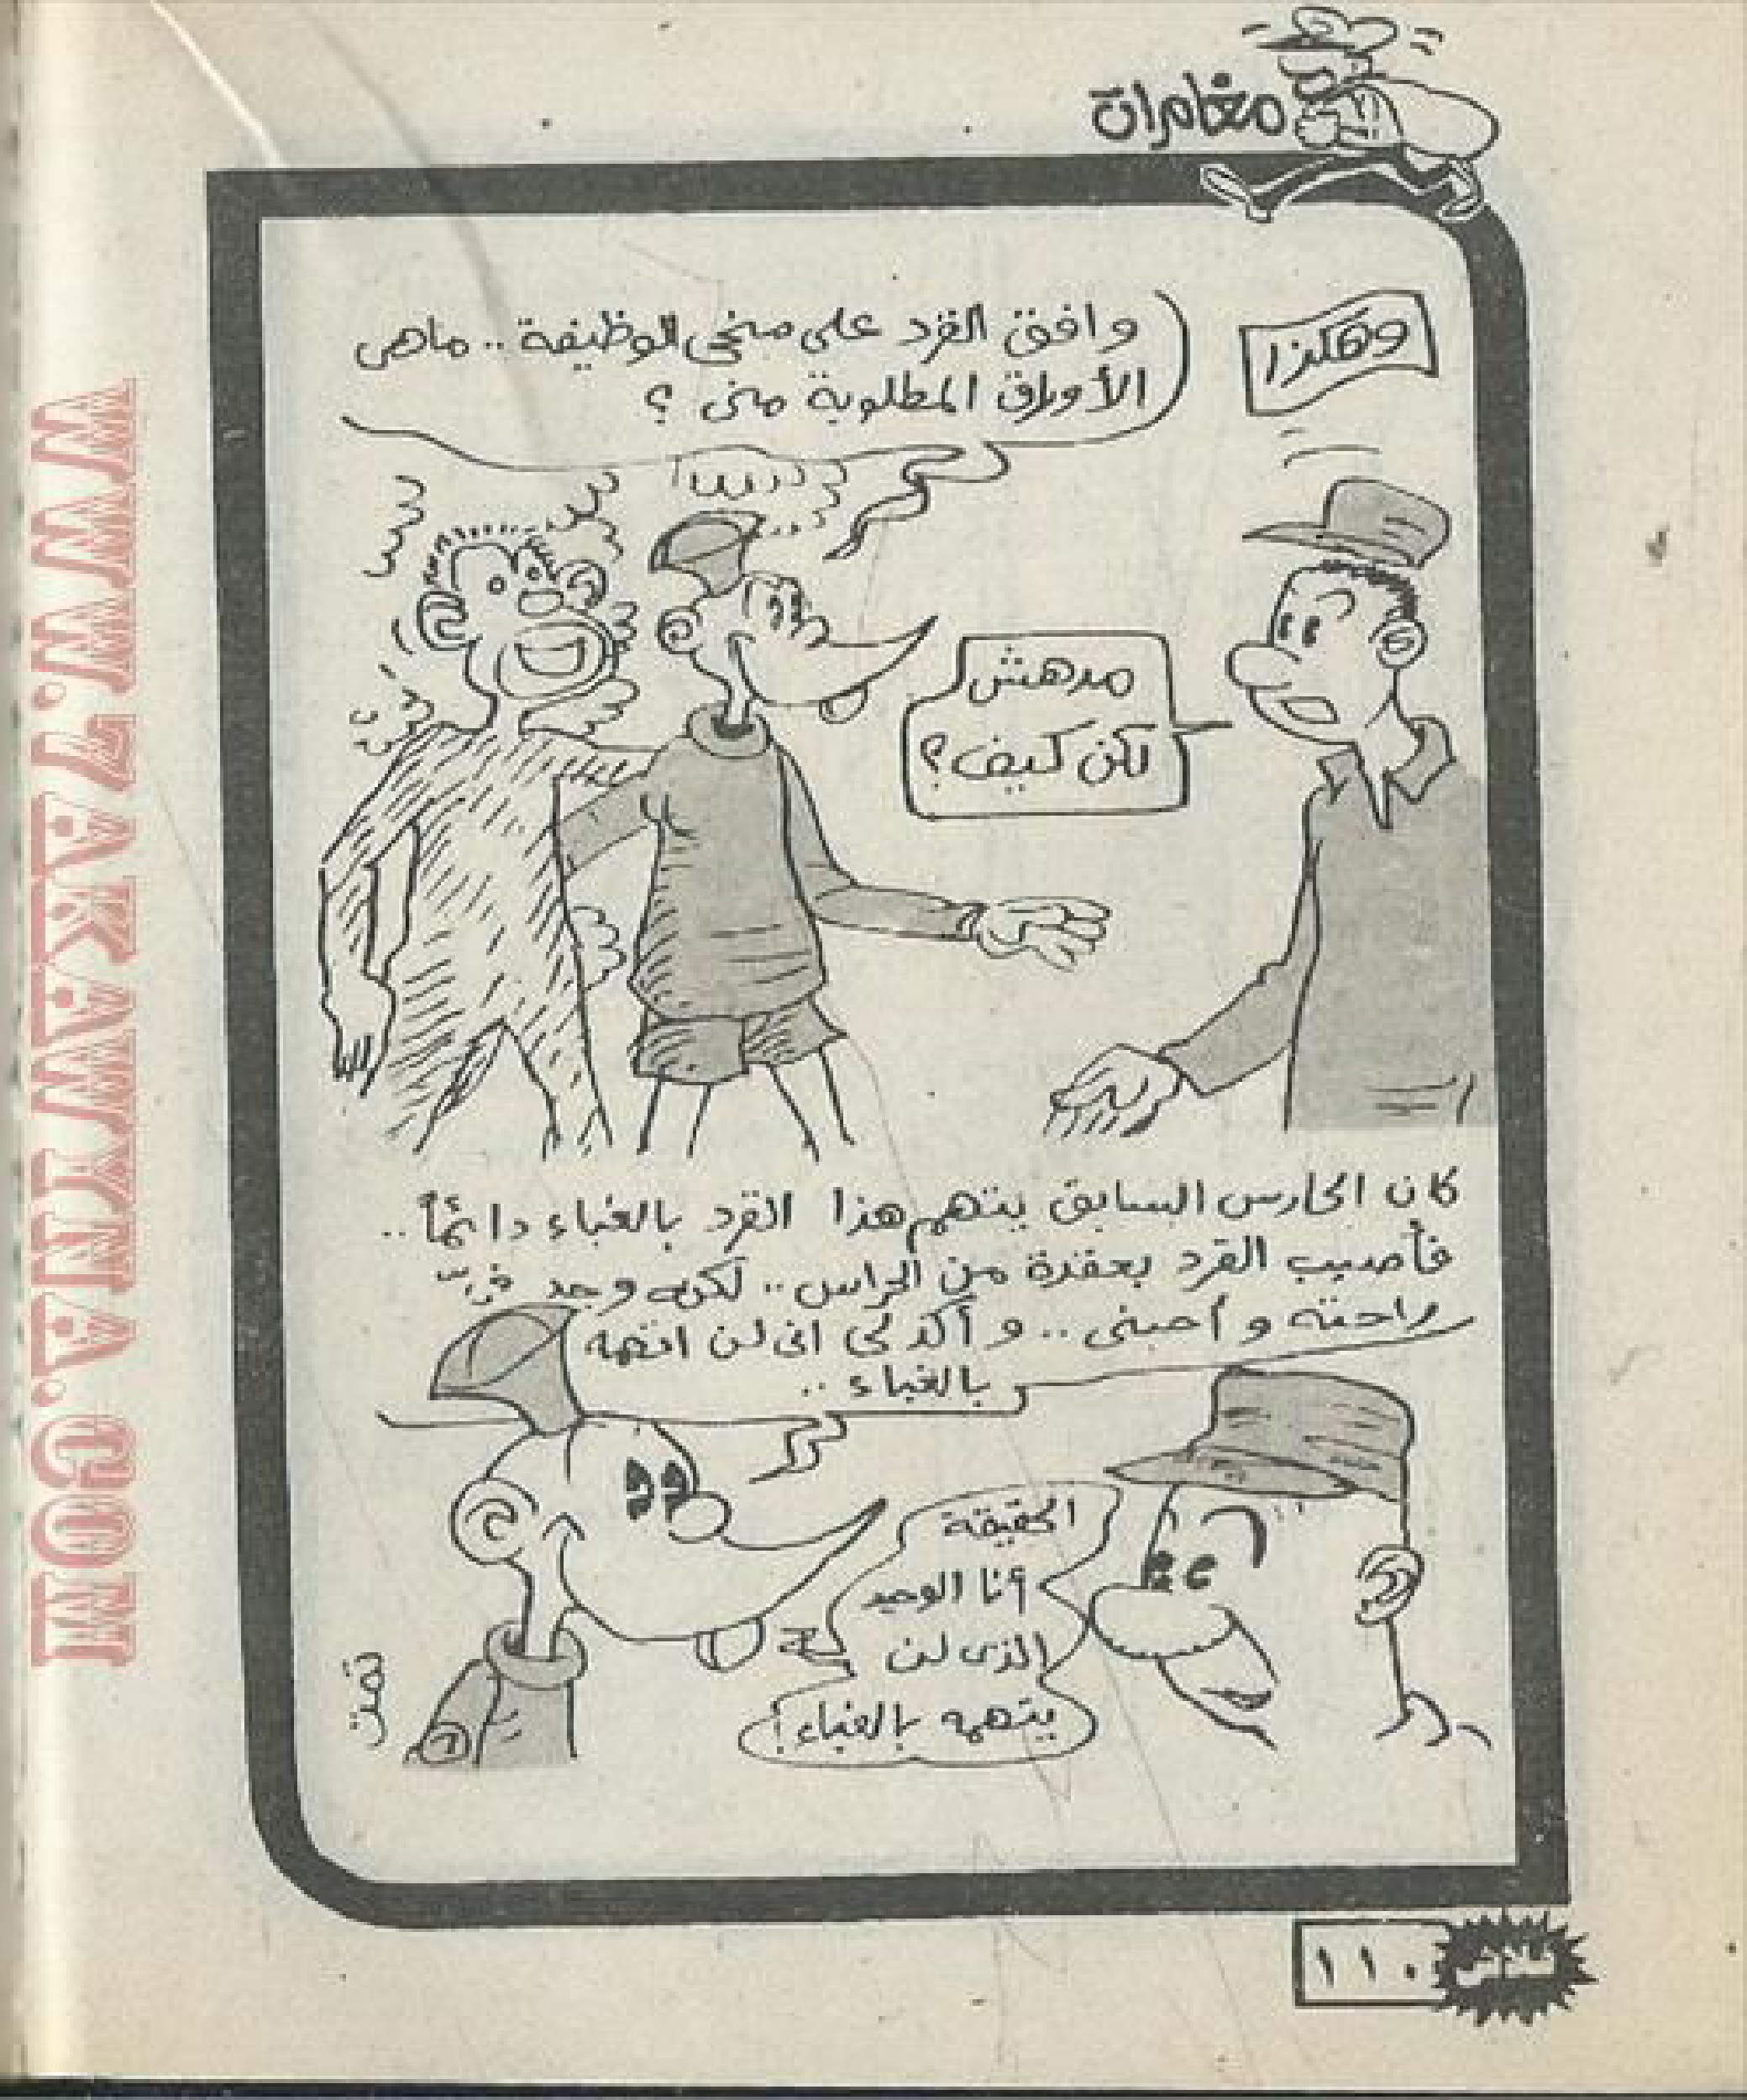 مغامرات
وهكذا
وافق القرد على منحى الوظيفة.. ماهى
الأوراق المطلوبة منى ؟
مدهش
لكن كيف ؟
كان الحارس السابق يتهم هذا القرد بالغباء دائماً..
فأصيب القرد بعقدة من الحراس.. لكنه وجد فىّ
راحته و أحبنى .. و أكد لى انى لن اتهمه
بالغباء ..
الحقيقة
أنا الوحيد
الذى لن
يتهمه بالغباء !
تمت
١١٠
WWW.7AKAWTNA.COM